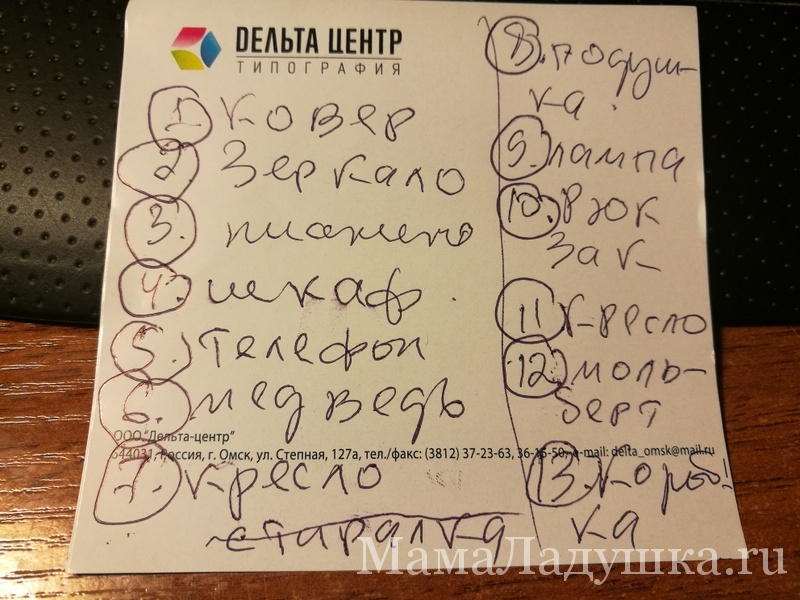 DЕЛЬТА ЦЕНТР
ТИПОГРАФИЯ
1. ковер
2. Зеркало
3. пианино
4. шкаф.
5. Телефон
6. медведь
ООО "Дельта-центр"
644031, Россия, г. Омск, ул. Степная, 127а, тел./факс: (3812) 37-23-63, 36-15-50, e-mail: delta_omsk@mail.ru
7. кресло
стиралка
8. подуш-
ка.
9. лампа
10. Рюк
Зак
11 кресло
12. моль-
берт
13. короб!
ка
МамаЛадушка.ru